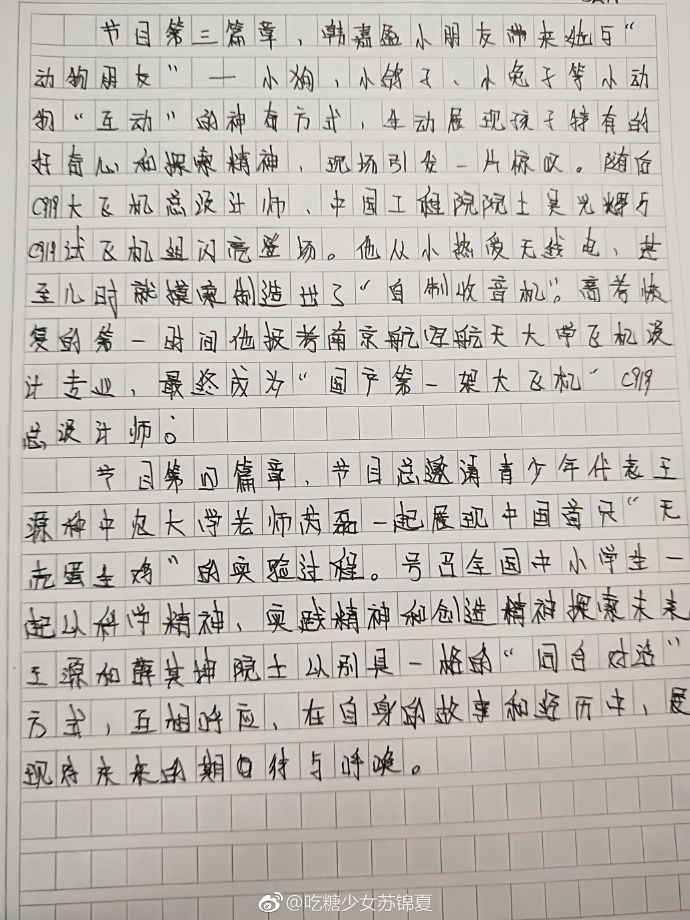 节目第三篇章，韩嘉盈小朋友带来她与“
动物朋友”一小狗，小鸽子、小兔子等小动
物“互动”的神奇方式，生动展现孩子特有的
好奇心和探索精神，现场引发一片惊叹。随后
C919大飞机总设计师、中国工程院院士吴光辉与
C919试飞机组闪亮登场。他从小热爱无线电，甚
至儿时就摸索制造出了“自制收音机”。高考恢
复的第一时间他报考南京航空航天大学飞机设
计专业，最终成为“国产第一架大飞机”C919
总设计师。
节目第四篇章，节目总邀请青少年代表王
源和中农大学老师芮磊一起展现中国首只“无
壳蛋生鸡”的实验过程。号召全国中小学生一
起以科学精神、实践精神和创造精神探索未来
王源和薛其坤院士以别具一格的“同台对话”
方式，互相呼应，在自身的故事和经历中，展
现对未来的期待与呼唤。
@吃糖少女苏锦夏